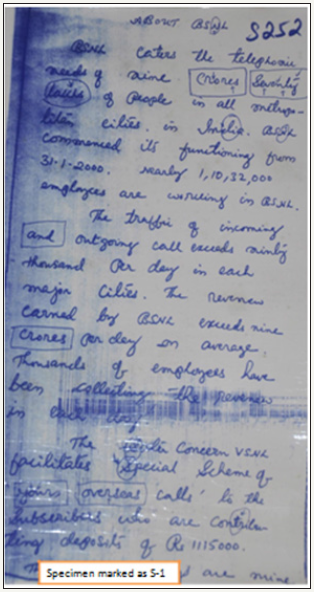 ABOUT BSNL
S252
BSNL caters the telephonic
needs of nine Crores Seventy
lakhs of People in all metropo-
litan cities in India. BSNL
commenced its functioning from
31-1-2000. nearly 1,10,32,000
employees are working in BSNL.
The traffic of incoming
and outgoing call exceeds ninty
thousand per day in each
major cities. The revenue
earned by BSNL exceeds nine
crores per day on average.
thousands of employees have
been collecting the revenue
in each day
The Concern VSNL
facilitates Special Scheme of
overseas calls' to the
Subscribers who are contribu-
ting deposits of Rs 1115000.
are nine
Specimen marked as S-1